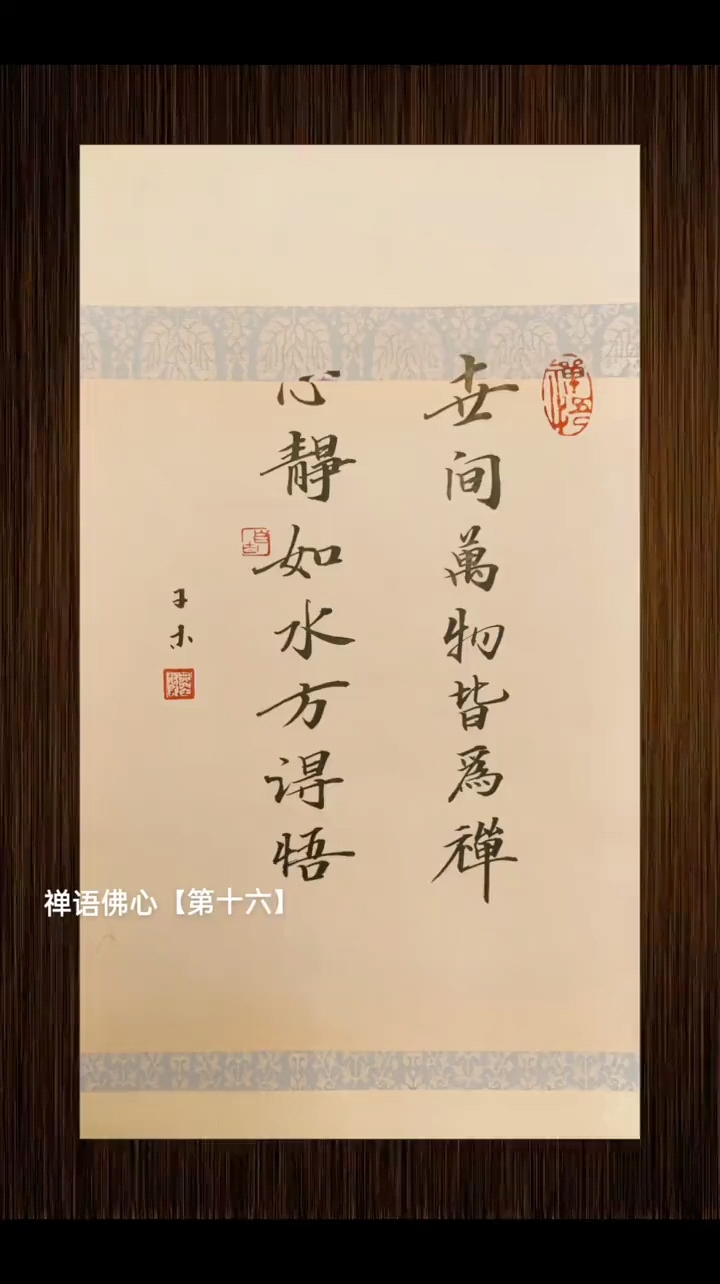 世间萬物皆爲禪
心靜如水方得悟
禅语佛心【第十六】